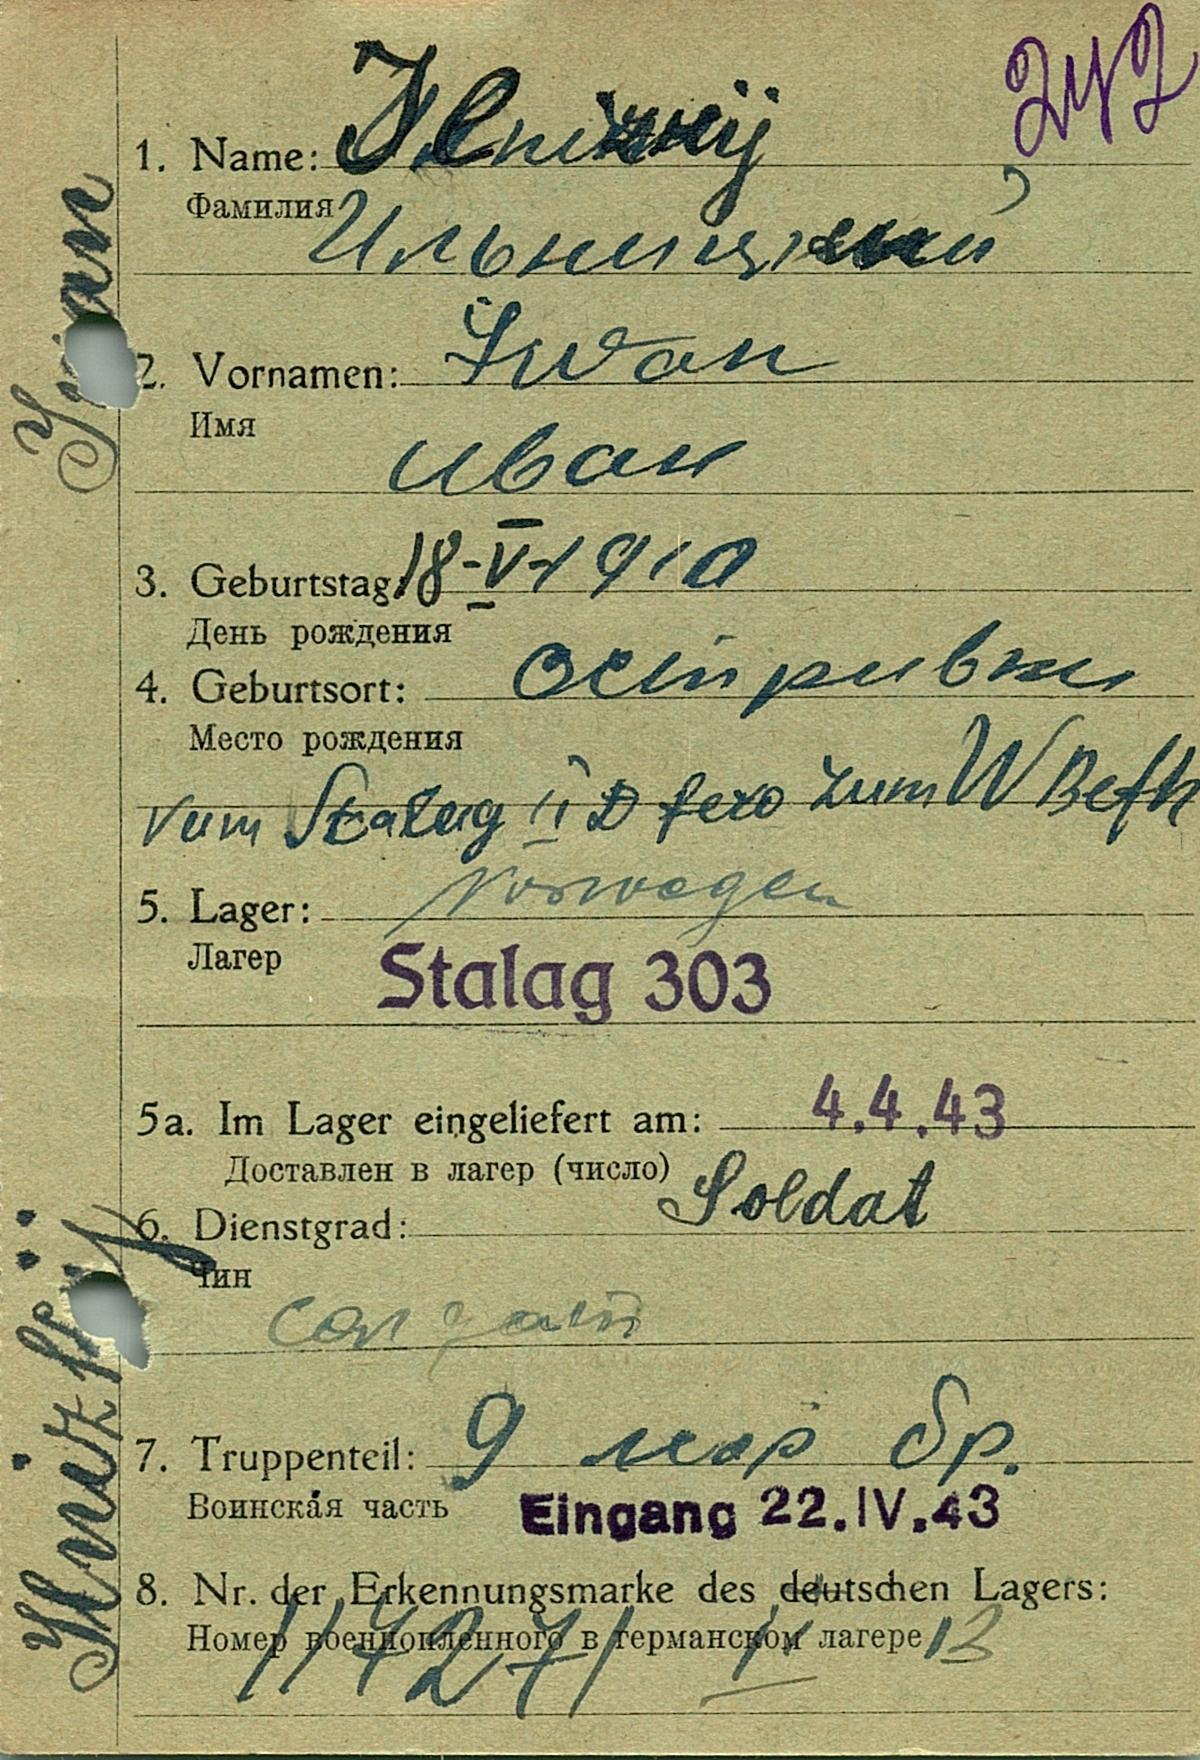 242
1. Name:
Фамилия
Ильницкий
2. Vornamen: Iwan
Имя
Иван
3. Geburtstag: 18-V-1910
День рождения
4. Geburtsort: Остривки
Место рождения
vom Stalag II D zum W Befh
Norwegen
5. Lager:
Лагер
Stalag 303
5a. Im Lager eingeliefert am: 4.4.43
Доставлен в лагер (число)
6. Dienstgrad: Soldat
Чин
солдат
7. Truppenteil: 9 бр.
Воинская часть
Eingang 22.IV.43
8. Nr. der Erkennungsmarke des deutschen Lagers:
Номер военнопленного в германском лагере
Ilnizkij Iwan